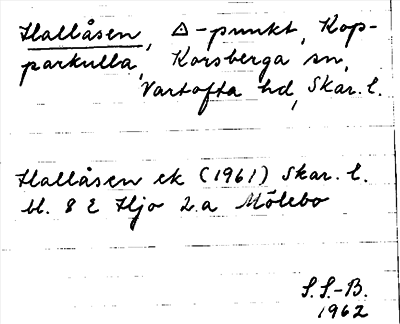 Hallåsen, △-punkt, Kop-
parkulla, Korsberga sn,
Vartofta hd, Skar. l.
Hallåsen ek (1961) Skar. l.
bl. 8 E Hjo 2.a Mölebo
S.S.-B.
1962